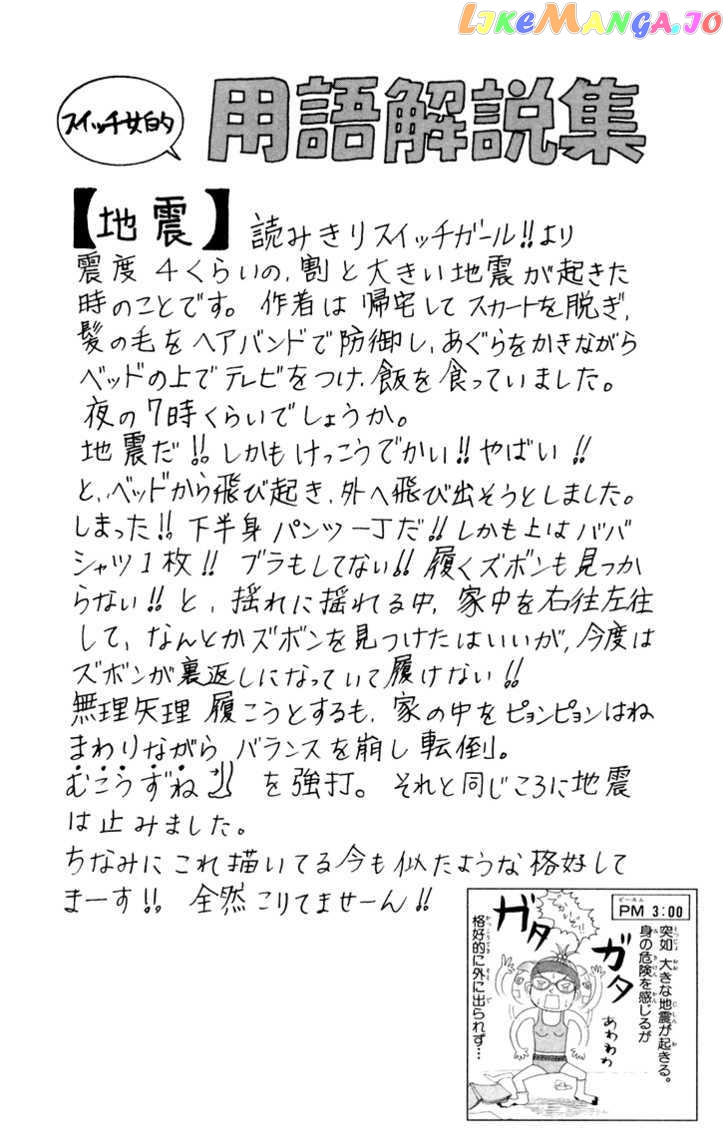 LIKEMANGA.IO
スイッチ女的
用語解説集
【地震】 読みきりスイッチガール!!より
震度4くらいの、割と大きい地震が起きた
時のことです。作者は帰宅してスカートを脱ぎ、
髪の毛をヘアバンドで防御し、あぐらをかきながら
ベッドの上でテレビをつけ、飯を食っていました。
夜の7時くらいでしょうか。
地震だ!!しかもけっこうでかい!!やばい!!
と、ベッドから飛び起き、外へ飛び出そうとしました。
しまった!!下半身パンツ一丁だ!!しかも上はババ
シャツ1枚!! ブラもしてない!!履くズボンも見つか
らない!!と、揺れに揺れる中、家中を右往左往
して、なんとかズボンを見つけたはいいが、今度は
ズボンが裏返しになっていて履けない!!
無理矢理履こうとするも、家の中をピョンピョンはね
まわりながらバランスを崩し転倒。
むこうずね を強打。それと同じころに地震
は止みました。
ちなみにこれ描いてる今も似たような格好して
まーす!! 全然こりてませーん!!
ピーエム
PM 3:00
突如 大きな地震が起きる。
身の危険を感じるが
ガタ
ガタ
あわわわ
格好的に外に出られず…